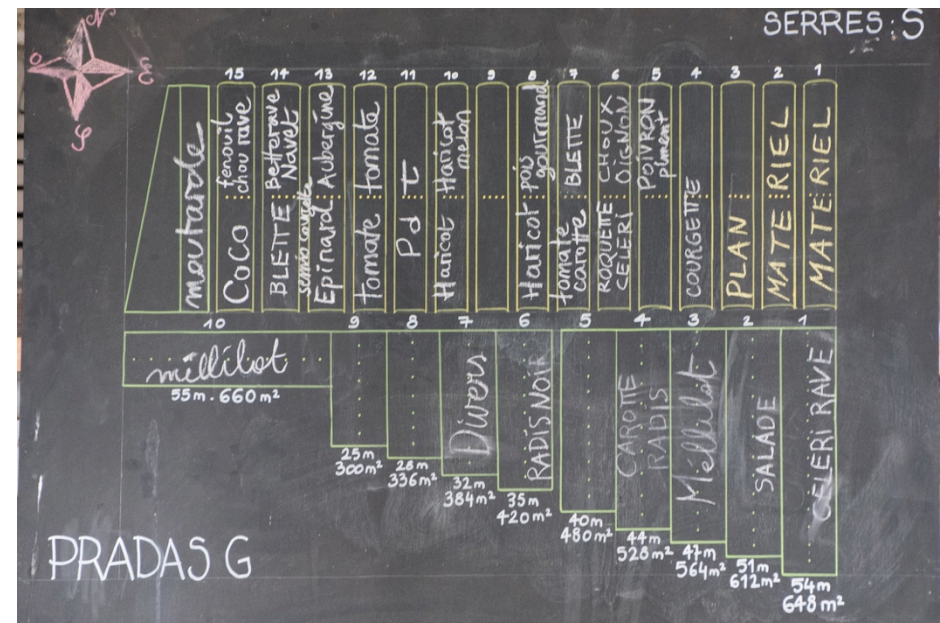 SERRES : S
N
O
E
S
15 14 13 12 11 10 9 8 7 6 5 4 3 2 1
moutarde
fenouil
chou rave
Coco
Betterave
Navet
BLETTE
semis courgette
Aubergine
Epinard
tomate
tomate
Pd t
Haricot
melon
Haricot
pois
gourmand
Haricot
BLETTE
tomate
carotte
CHOUX
OIGNON
ROQUETTE
CELERI
POIVRON
piment
COURGETTE
PLAN
MATERIEL
MATERIEL
10 9 8 7 6 5 4 3 2 1
millilot
55m . 660m²
25m
300m²
28m
336m²
Divers
32m
384m²
RADIS NOIR
35m
420m²
40m
480m²
CAROTTE
RADIS
44m
528m²
Méllilot
47m
564m²
SALADE
51m
612m²
CELERI RAVE
54m
648m²
PRADAS G